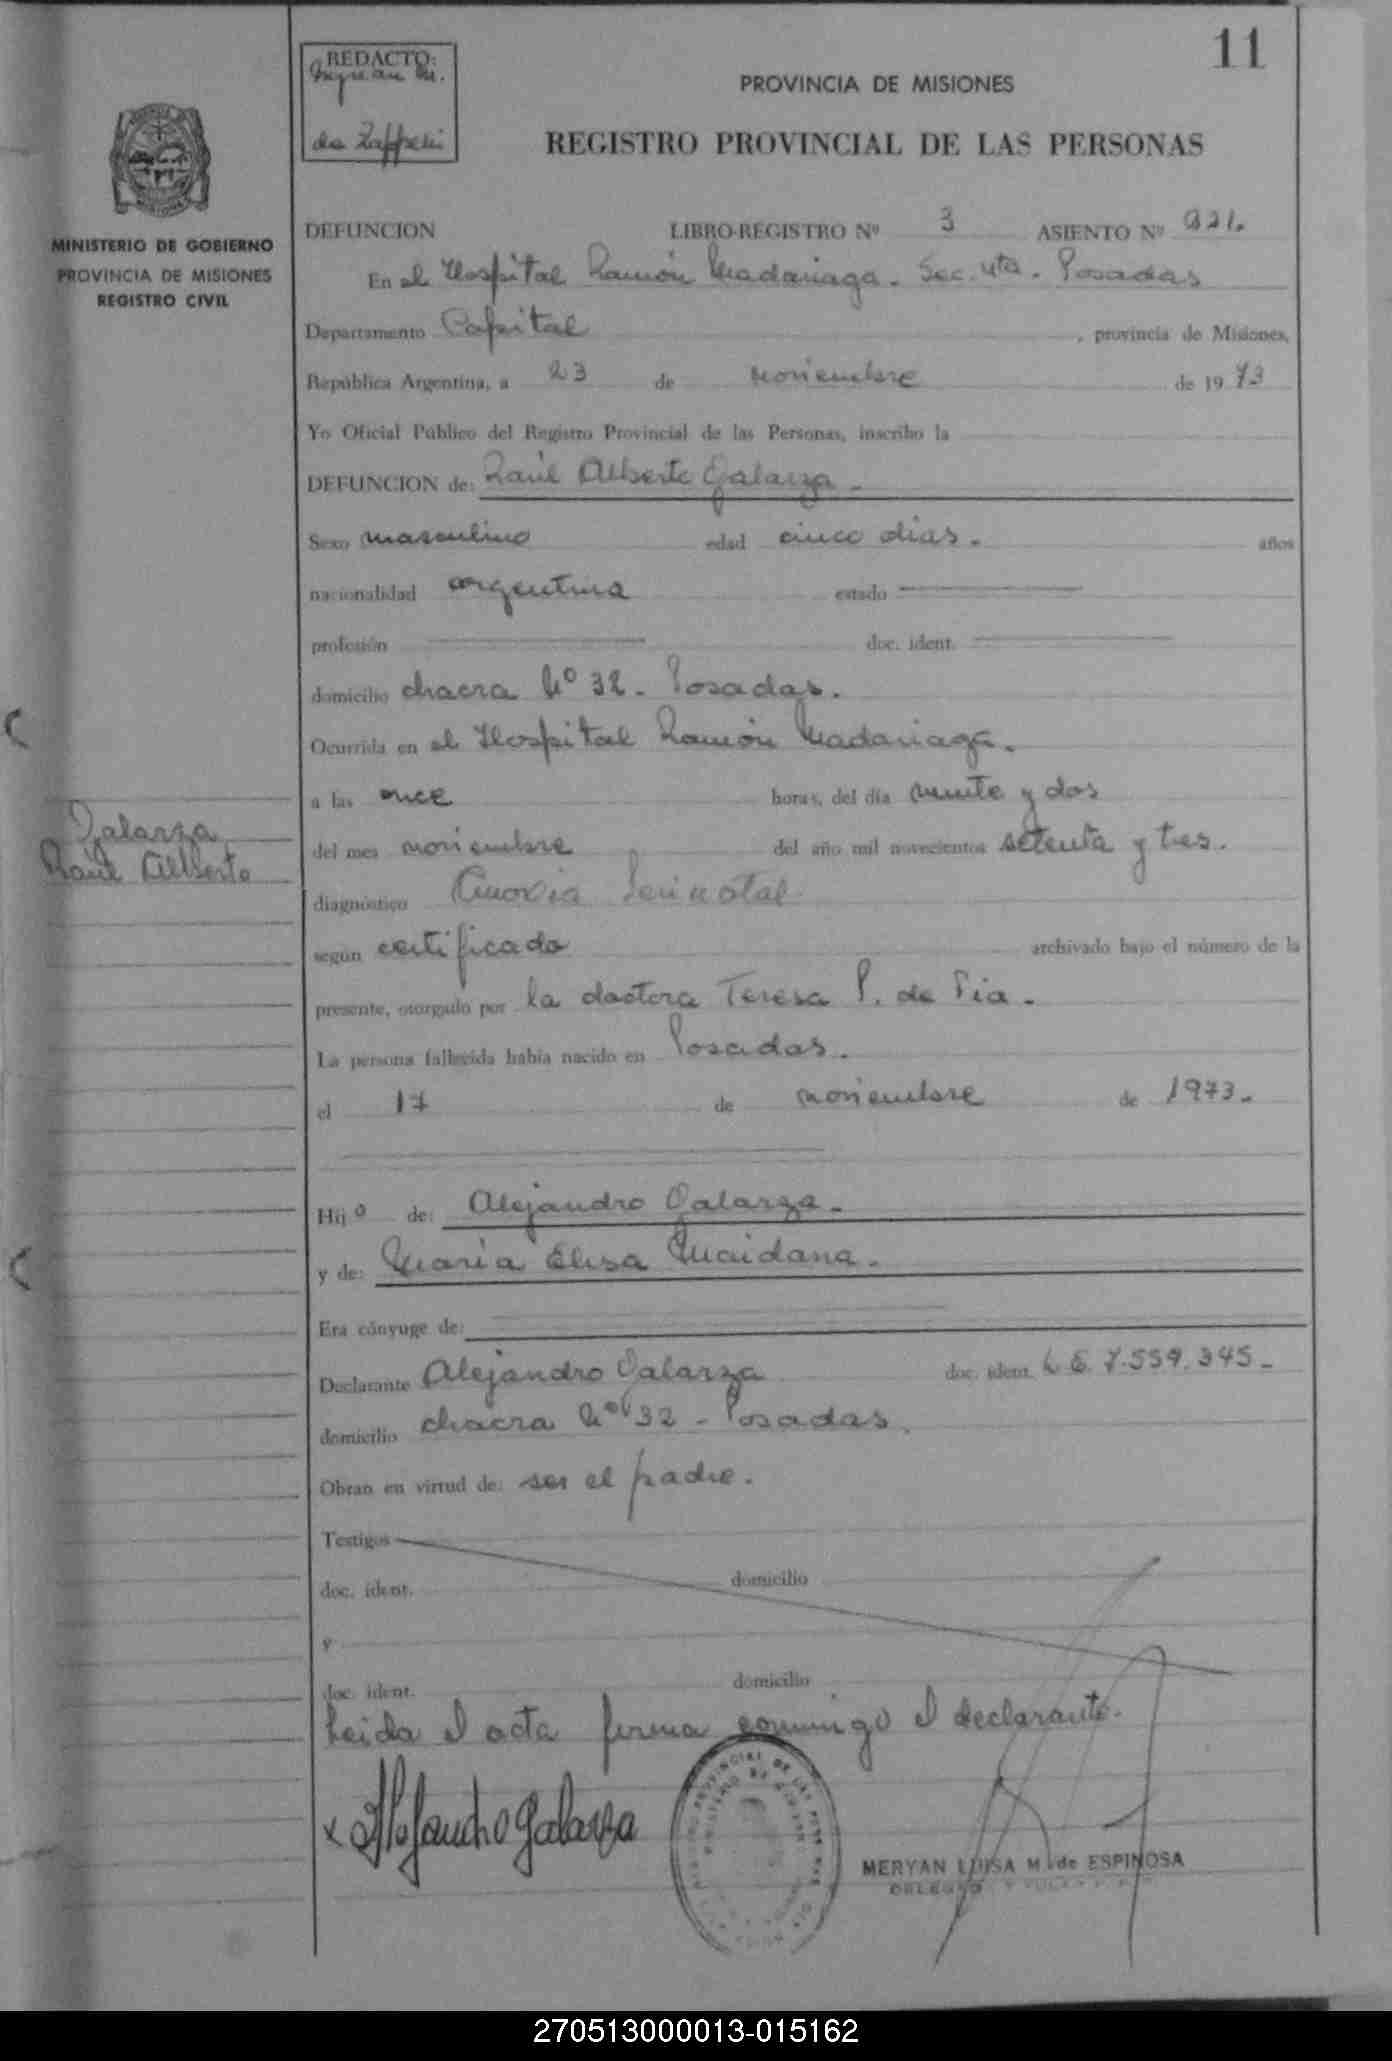 11
REDACTO:
Meryan M.
de Zapperi
PROVINCIA DE MISIONES
REGISTRO PROVINCIAL DE LAS PERSONAS
MINISTERIO DE GOBIERNO
PROVINCIA DE MISIONES
REGISTRO CIVIL
DEFUNCION LIBRO-REGISTRO Nº 3 ASIENTO Nº 921.
En el Hospital Ramón Madariaga - Sec. 4ta. Posadas
Departamento Capital , provincia de Misiones,
República Argentina, a 23 de noviembre de 1973
Yo Oficial Público del Registro Provincial de las Personas, inscribo la
DEFUNCION de: Raúl Alberto Galarza -
Sexo masculino edad cinco días. años
nacionalidad argentina estado
profesión doc. ident.
domicilio chacra Nº 32 - Posadas.
Ocurrida en el Hospital Ramón Madariaga.
a las once horas, del día veinte y dos
Galarza
Raúl Alberto
del mes noviembre del año mil novecientos setenta y tres.
diagnóstico Anoxia Perinatal
según certificado archivado bajo el número de la
presente, otorgado por la doctora Teresa P. de Pia.
La persona fallecida había nacido en Posadas.
el 17 de noviembre de 1973.
Hijo de: Alejandro Galarza.
y de: María Elisa Maidana.
Era cónyuge de:
Declarante Alejandro Galarza doc. ident. L E. 7.559.345-
domicilio chacra Nº 32 - Posadas.
Obran en virtud de: ser el padre.
Testigos
doc. ident. domicilio
y
doc. ident. domicilio
Leída el acta firma conmigo el declarante.
x Alejandro Galarza
MERYAN LUISA M. de ESPINOSA
270513000013-015162